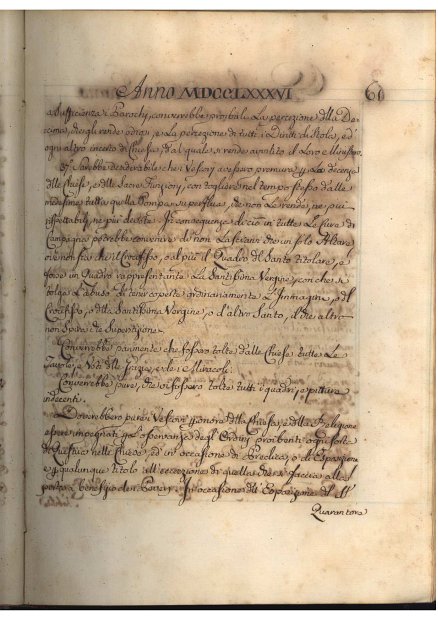 Anno MDCCLXXXVI
60
a sufficienza i Parochj, converrebbe proibir La percezione della De
cima, che gli rende odiosi, e La percezione di tutti i Diritti di Stola, ed'
ogni altro incerto di Chiesa, dal quale si rende avvilito il Loro Ministero
37. Sarebbe desiderabile che i Vescovi avessero premura p La decenza
delle Chiese, e delle Sacre Funzioni, con togliere nel tempo stesso dalle
medesime tutta quella Pompa superflua, che non Le rende, ne piu
rispettabili, ne piu decite. In conseguenza di cio in tutte Le Cure di
Campagna potrebbe convenire di non Lasciarvi che un solo Altare
ove non sia che il Crocifisso, ed al piu il Quadro del Santo titolare, e
forse un Quadro rappresentante La Santissima Vergine, con che si
tolga L'abuso di tener coperte ordinariamente L'Immagine, del
Crocifisso, o della Santissima Vergine, o d'altro Santo, il che altro
non spira che superstizione.
Converrebbe parimente che fossero tolte dalle Chiese tutte Le
Tavole, e Voti delle Grazie, e de i Miracoli:
Converrebbe pure, che vi fossero tolte tutti i quadri, e pitture
indecenti.
Dovrebbero pure i Vescovi p onore della Chiesa, e della Religione
essere impegnati p L'osservanza degl'Ordini proibenti ogni sorte
di Questue nelle Chiese, ed in occasione di Prediche, o di Esposizioni
e p qualunque titolo all'eccezione di quella che si faccia alle
porte a benefizio dei Poveri: In occasione dell'Esposizione del SS.
Quarantore